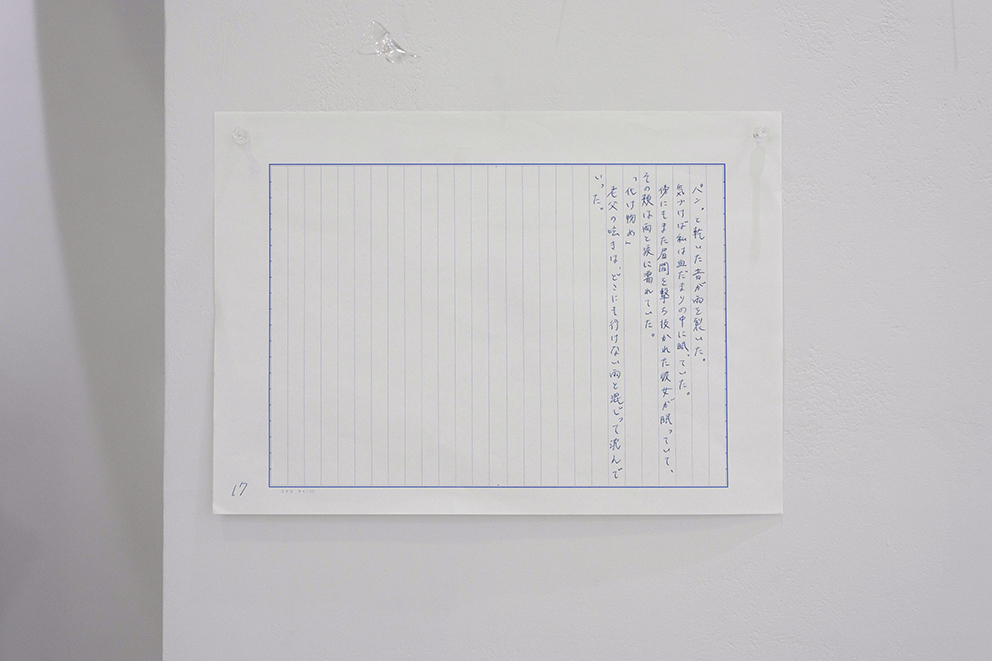 パン。と乾いた音が雨を裂いた。
気づけば私は血だまりの中に眠っていた。
傍にもまた眉間を撃ち抜かれた彼女が眠っていて、
その頬は雨と涙に濡れていた。
「化け物め」
老父の呟きは、どこにも行けない雨と混じって沈んで
いった。
17